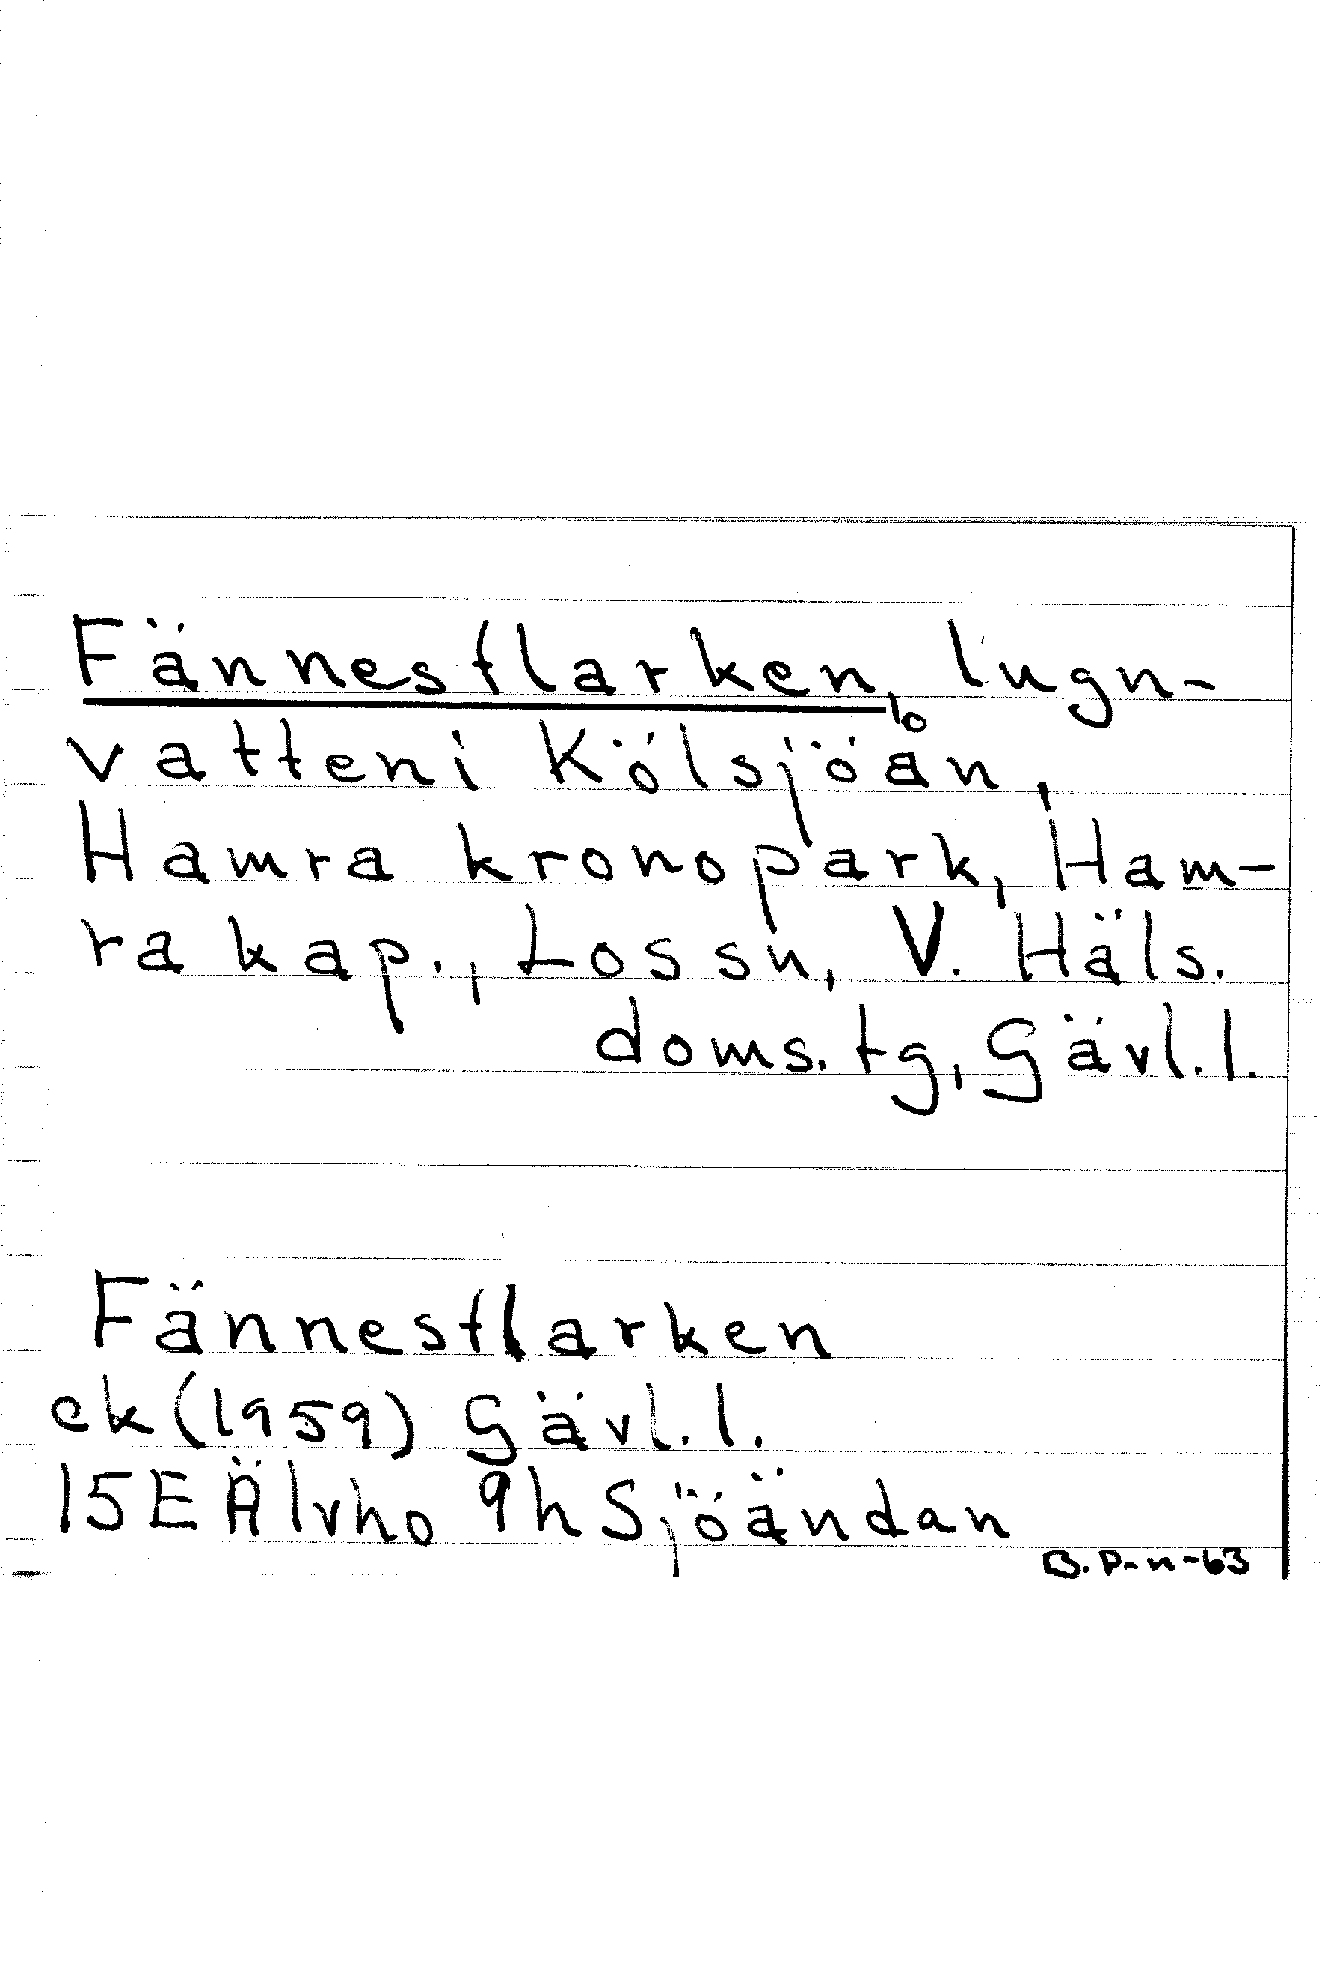 Fännesflarken, lugn-
vatten i Kölsjöån,
Hamra kronopark, Ham-
ra kap., Los sn, V. Häls.
doms. tg, Gävl. l.
Fännesflarken
ek (1959) Gävl. l.
15E Älvho 9h Sjöändan
B. P-n-63